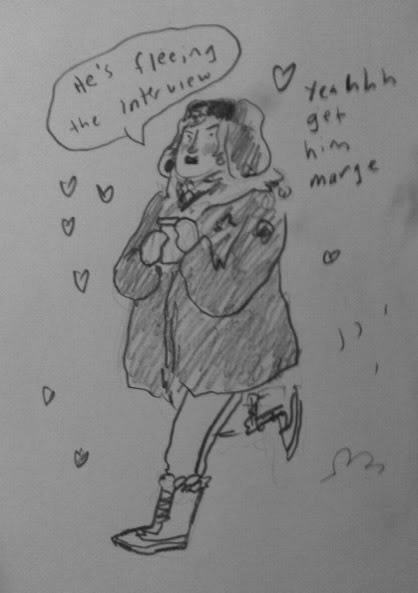 He's fleeing
the interview
Yeahhh
get
him
marge